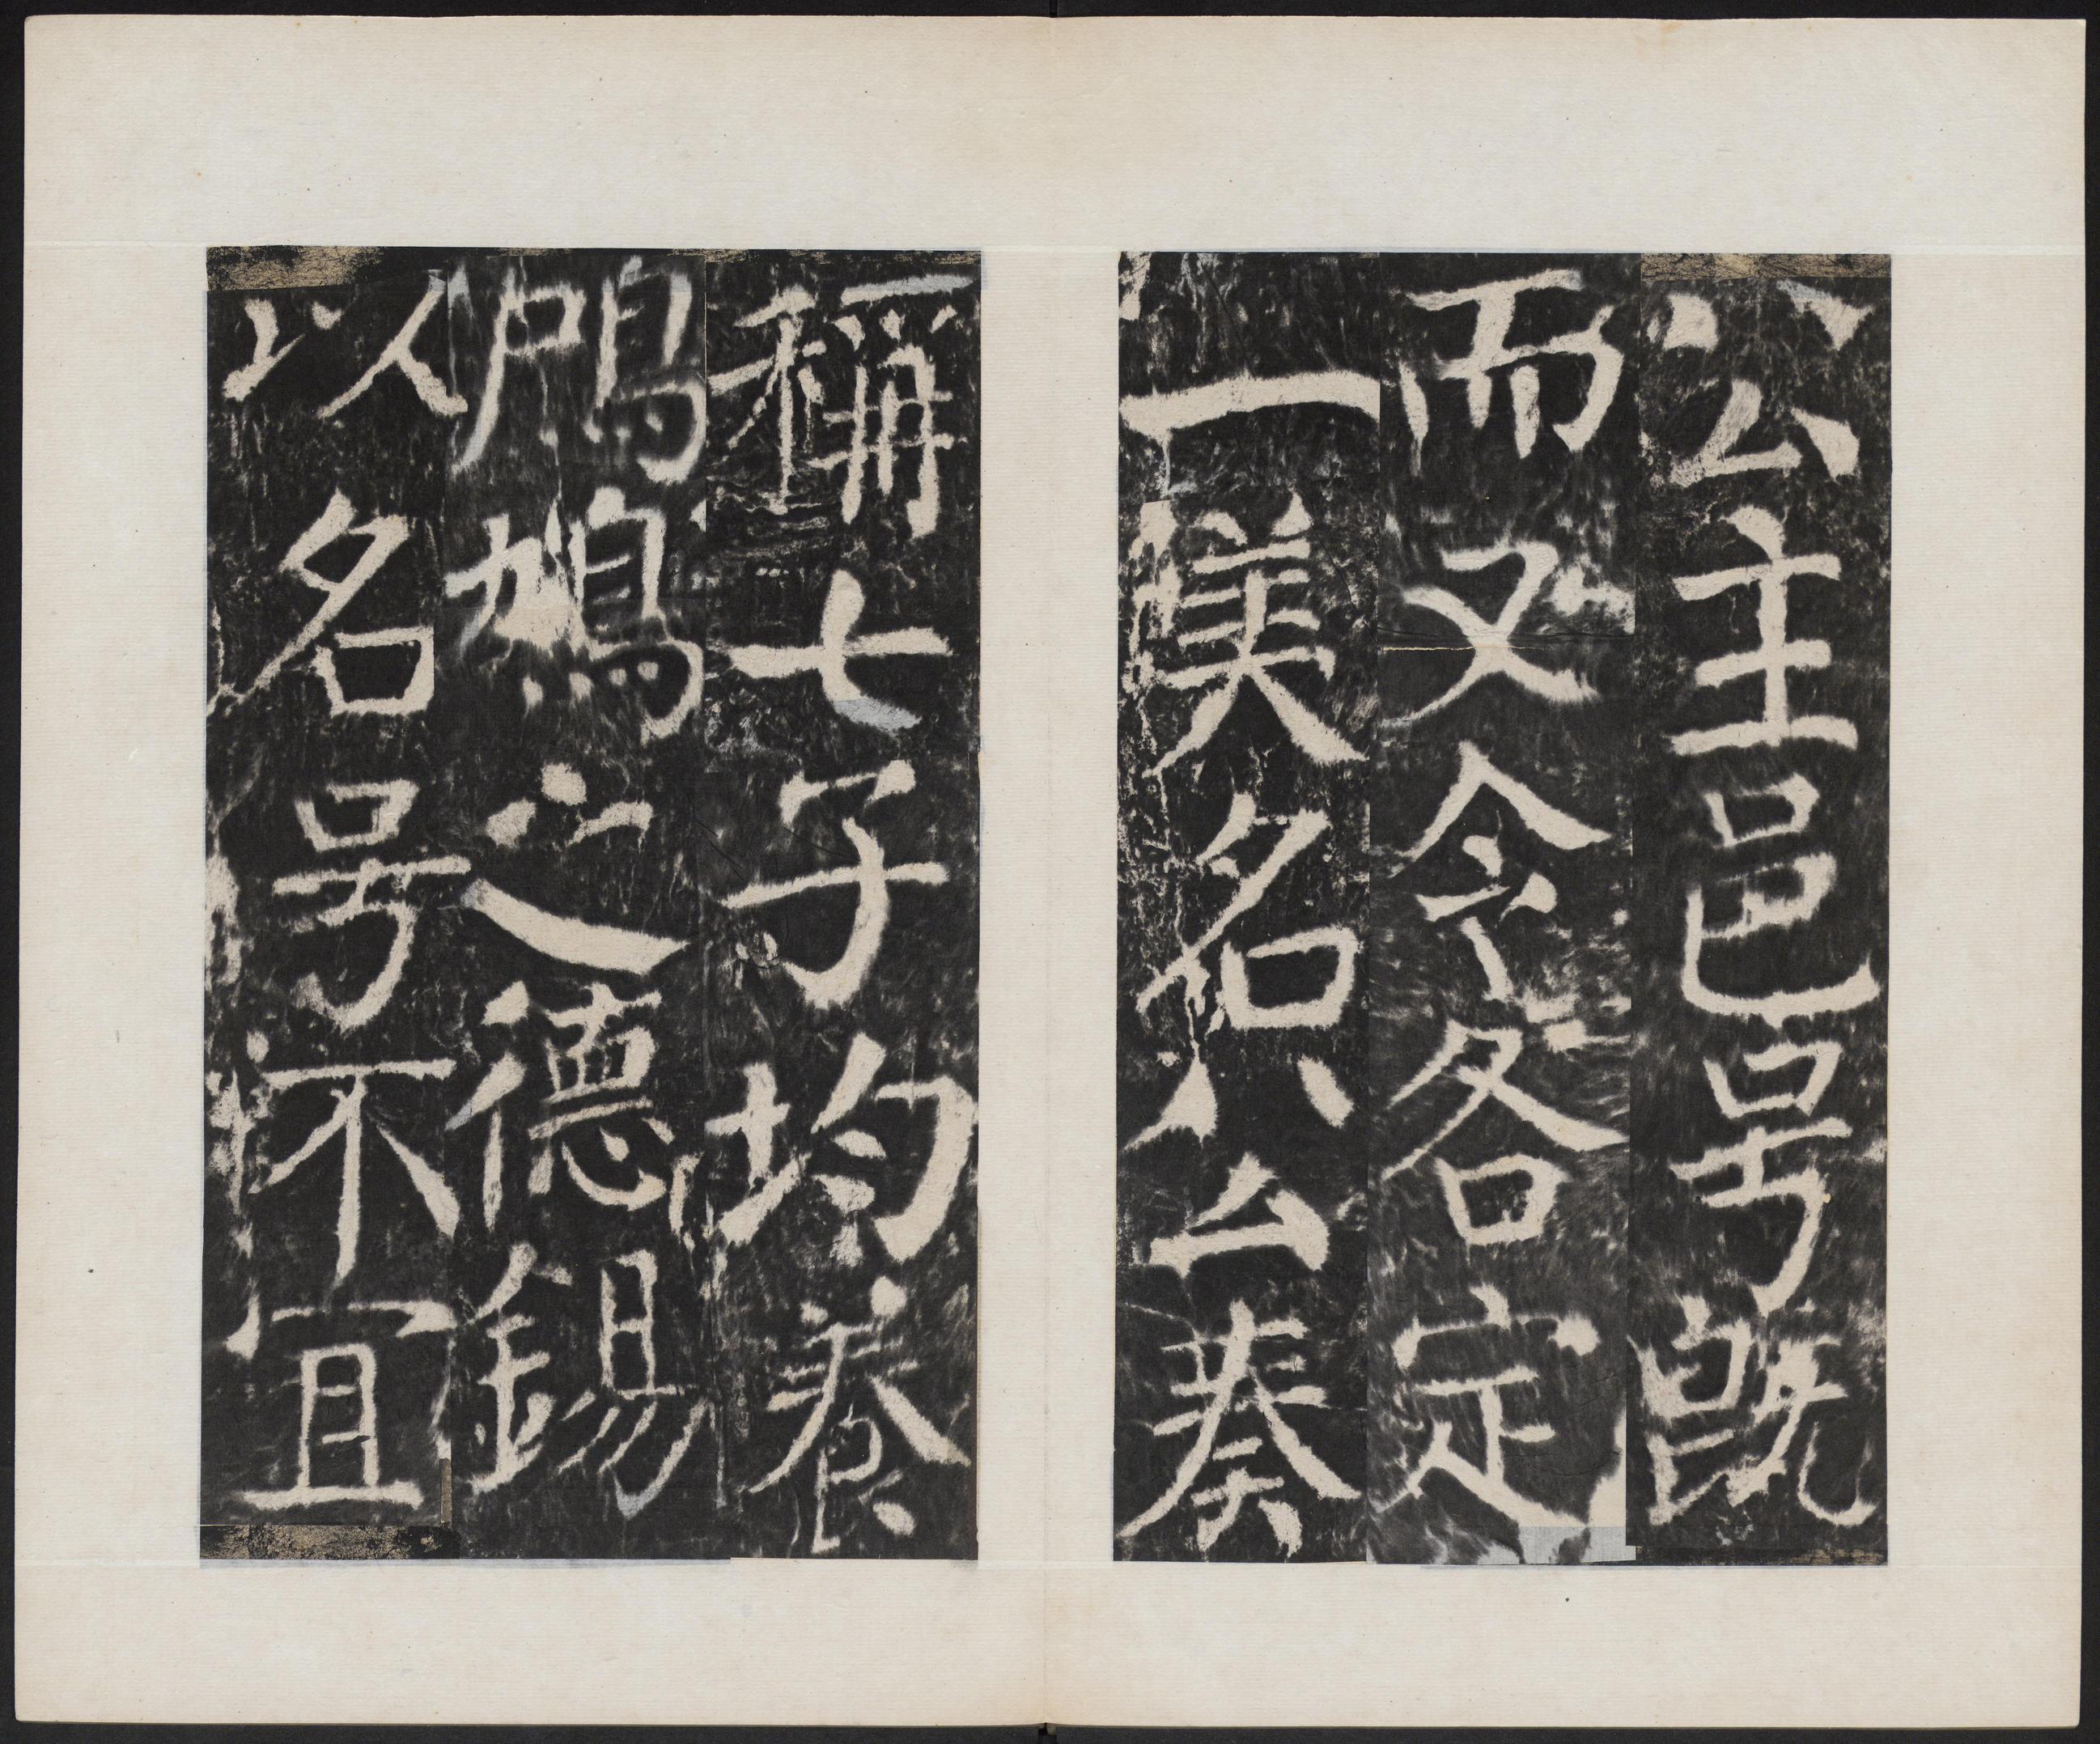 公主邑号既
而又令各定
一美名公奏
稱七子均養
鳲鳩之德錫
以名号不宜